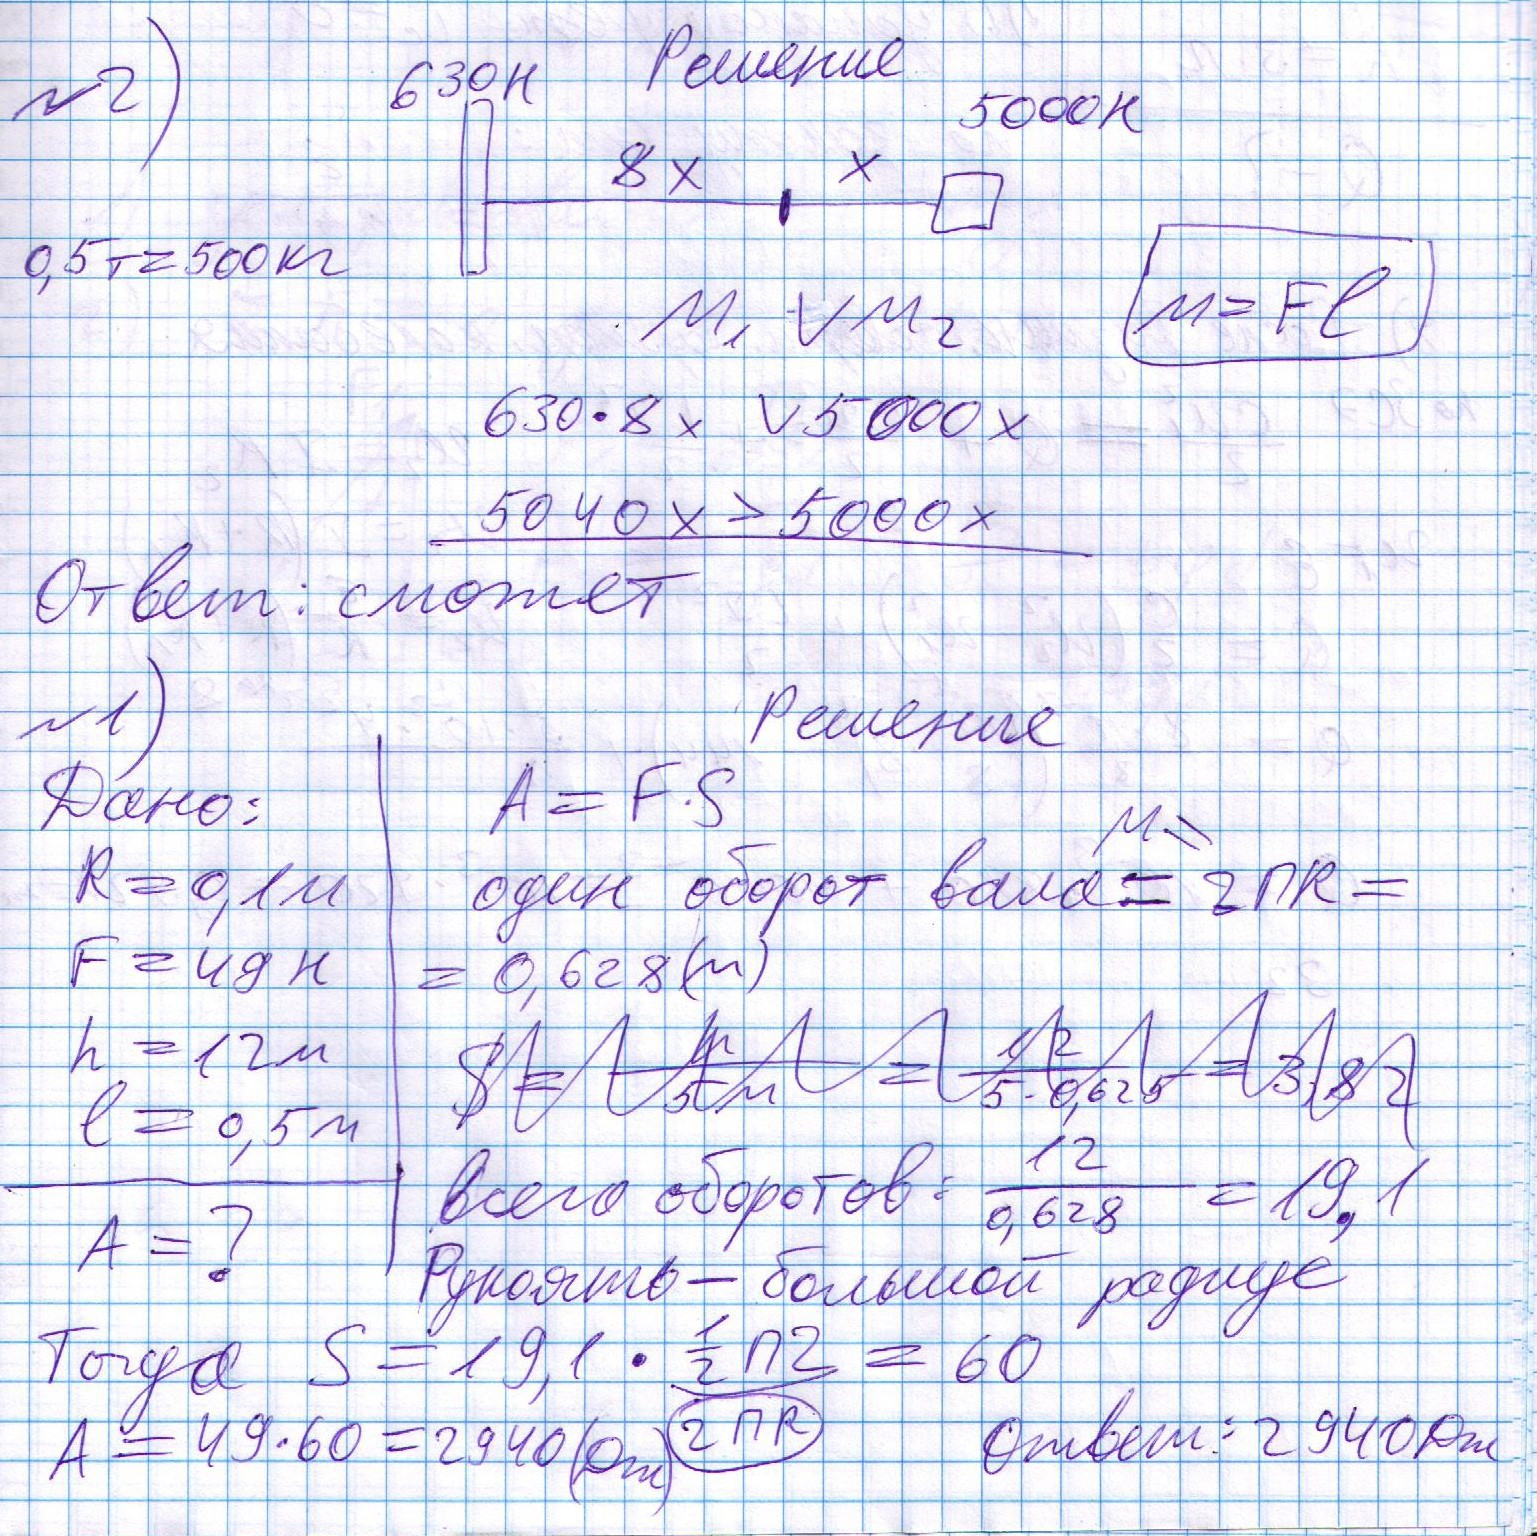 №2)
Решение
630Н
5000Н
8x
x
0,5т=500кг
M₁ ∨ M₂
M=Fl
630·8x ∨ 5000x
5040x > 5000x
Ответ: сможет
№1)
Решение
Дано:
R=0,1м
F=49Н
h=12м
l=0,5м
A=?
A=F·S
M=
один оборот вала = 2ПR =
= 0,628(м)
всего оборотов: 12/0,628 = 19,1
Рукоять – большой радиус
Тогда S = 19,1 · 1/2 П2 = 60
2ПR
A = 49·60 = 2940(Дж)
Ответ: 2940Дж